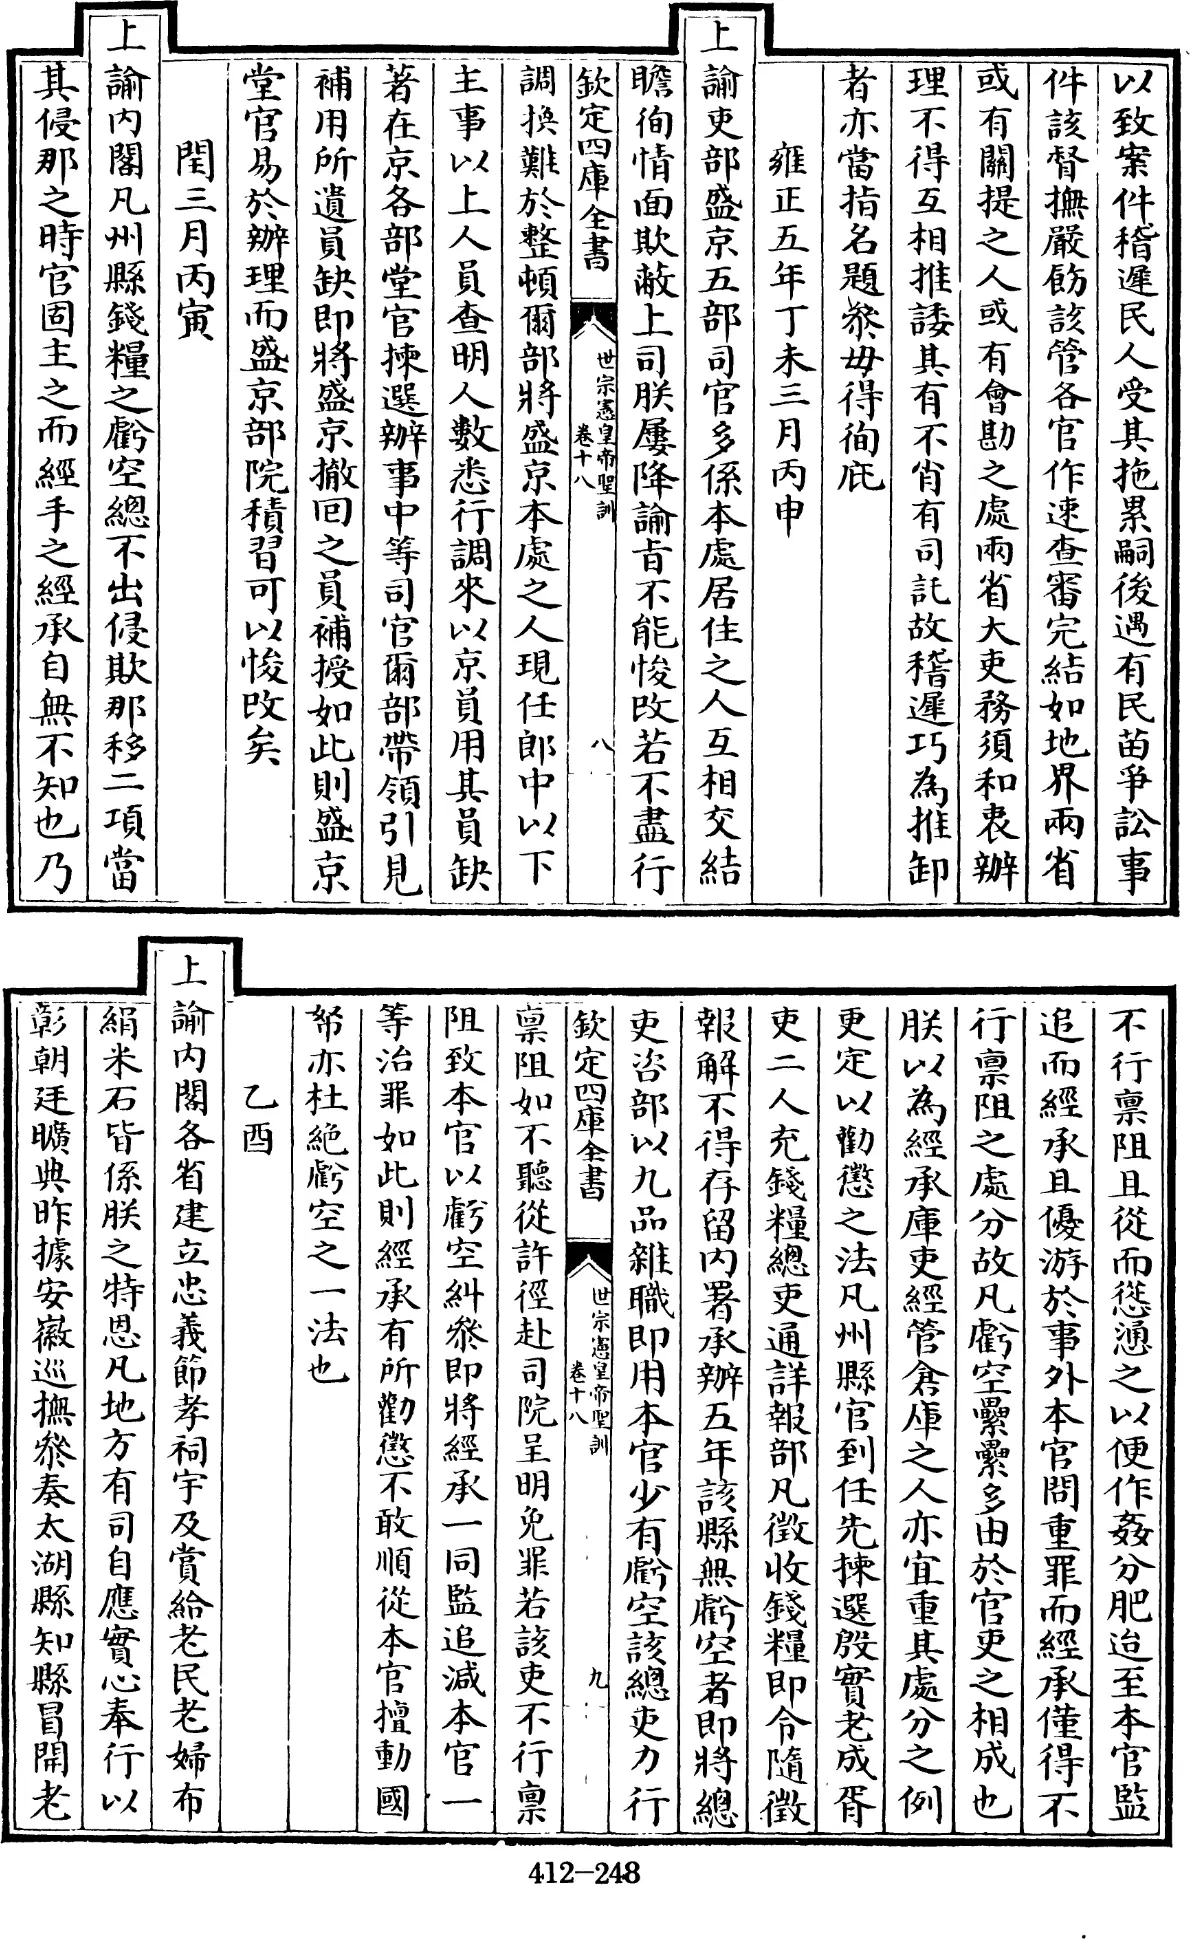 以致案件稽遲民人受其拖累嗣後遇有民苗爭訟事
件該督撫嚴飭該管各官作速查審完結如地界兩省
或有關提之人或有會勘之處兩省大吏務須和衷辦
理不得互相推諉其有不肖有司託故稽遲巧為推卸
者亦當指名題叅毋得徇庇
雍正五年丁未三月丙申
上諭吏部盛京五部司官多係本處居住之人互相交結
瞻徇情面欺蔽上司朕屢降諭旨不能悛改若不盡行
欽定四庫全書
世宗憲皇帝聖訓
卷十八
八
調換難於整頓爾部將盛京本處之人現任郎中以下
主事以上人員查明人數悉行調來以京員用其員缺
著在京各部堂官揀選辦事中等司官爾部帶領引見
補用所遺員缺即將盛京撤回之員補授如此則盛京
堂官易於辦理而盛京部院積習可以悛改矣
閏三月丙寅
上諭內閣凡州縣錢糧之虧空總不出侵欺那移二項當
其侵那之時官固主之而經手之經承自無不知也乃
不行禀阻且從而慫慂之以便作姦分肥迨至本官監
追而經承且優游於事外本官問重罪而經承僅得不
行禀阻之處分故凡虧空纍纍多由於官吏之相成也
朕以為經承庫吏經管倉庫之人亦宜重其處分之例
更定以勸懲之法凡州縣官到任先揀選殷實老成胥
吏二人充錢糧總吏通詳報部凡徵收錢糧即令隨徵
報解不得存留內署承辦五年該縣無虧空者即將總
吏咨部以九品雜職即用本官少有虧空該總吏力行
欽定四庫全書
世宗憲皇帝聖訓
卷十八
九
禀阻如不聽從許徑赴司院呈明免罪若該吏不行禀
阻致本官以虧空糾叅即將經承一同監追減本官一
等治罪如此則經承有所勸懲不敢順從本官擅動國
帑亦杜絶虧空之一法也
乙酉
上諭內閣各省建立忠義節孝祠宇及賞給老民老婦布
絹米石皆係朕之特恩凡地方有司自應實心奉行以
彰朝廷曠典昨據安徽巡撫叅奏太湖縣知縣冒開老
412-248